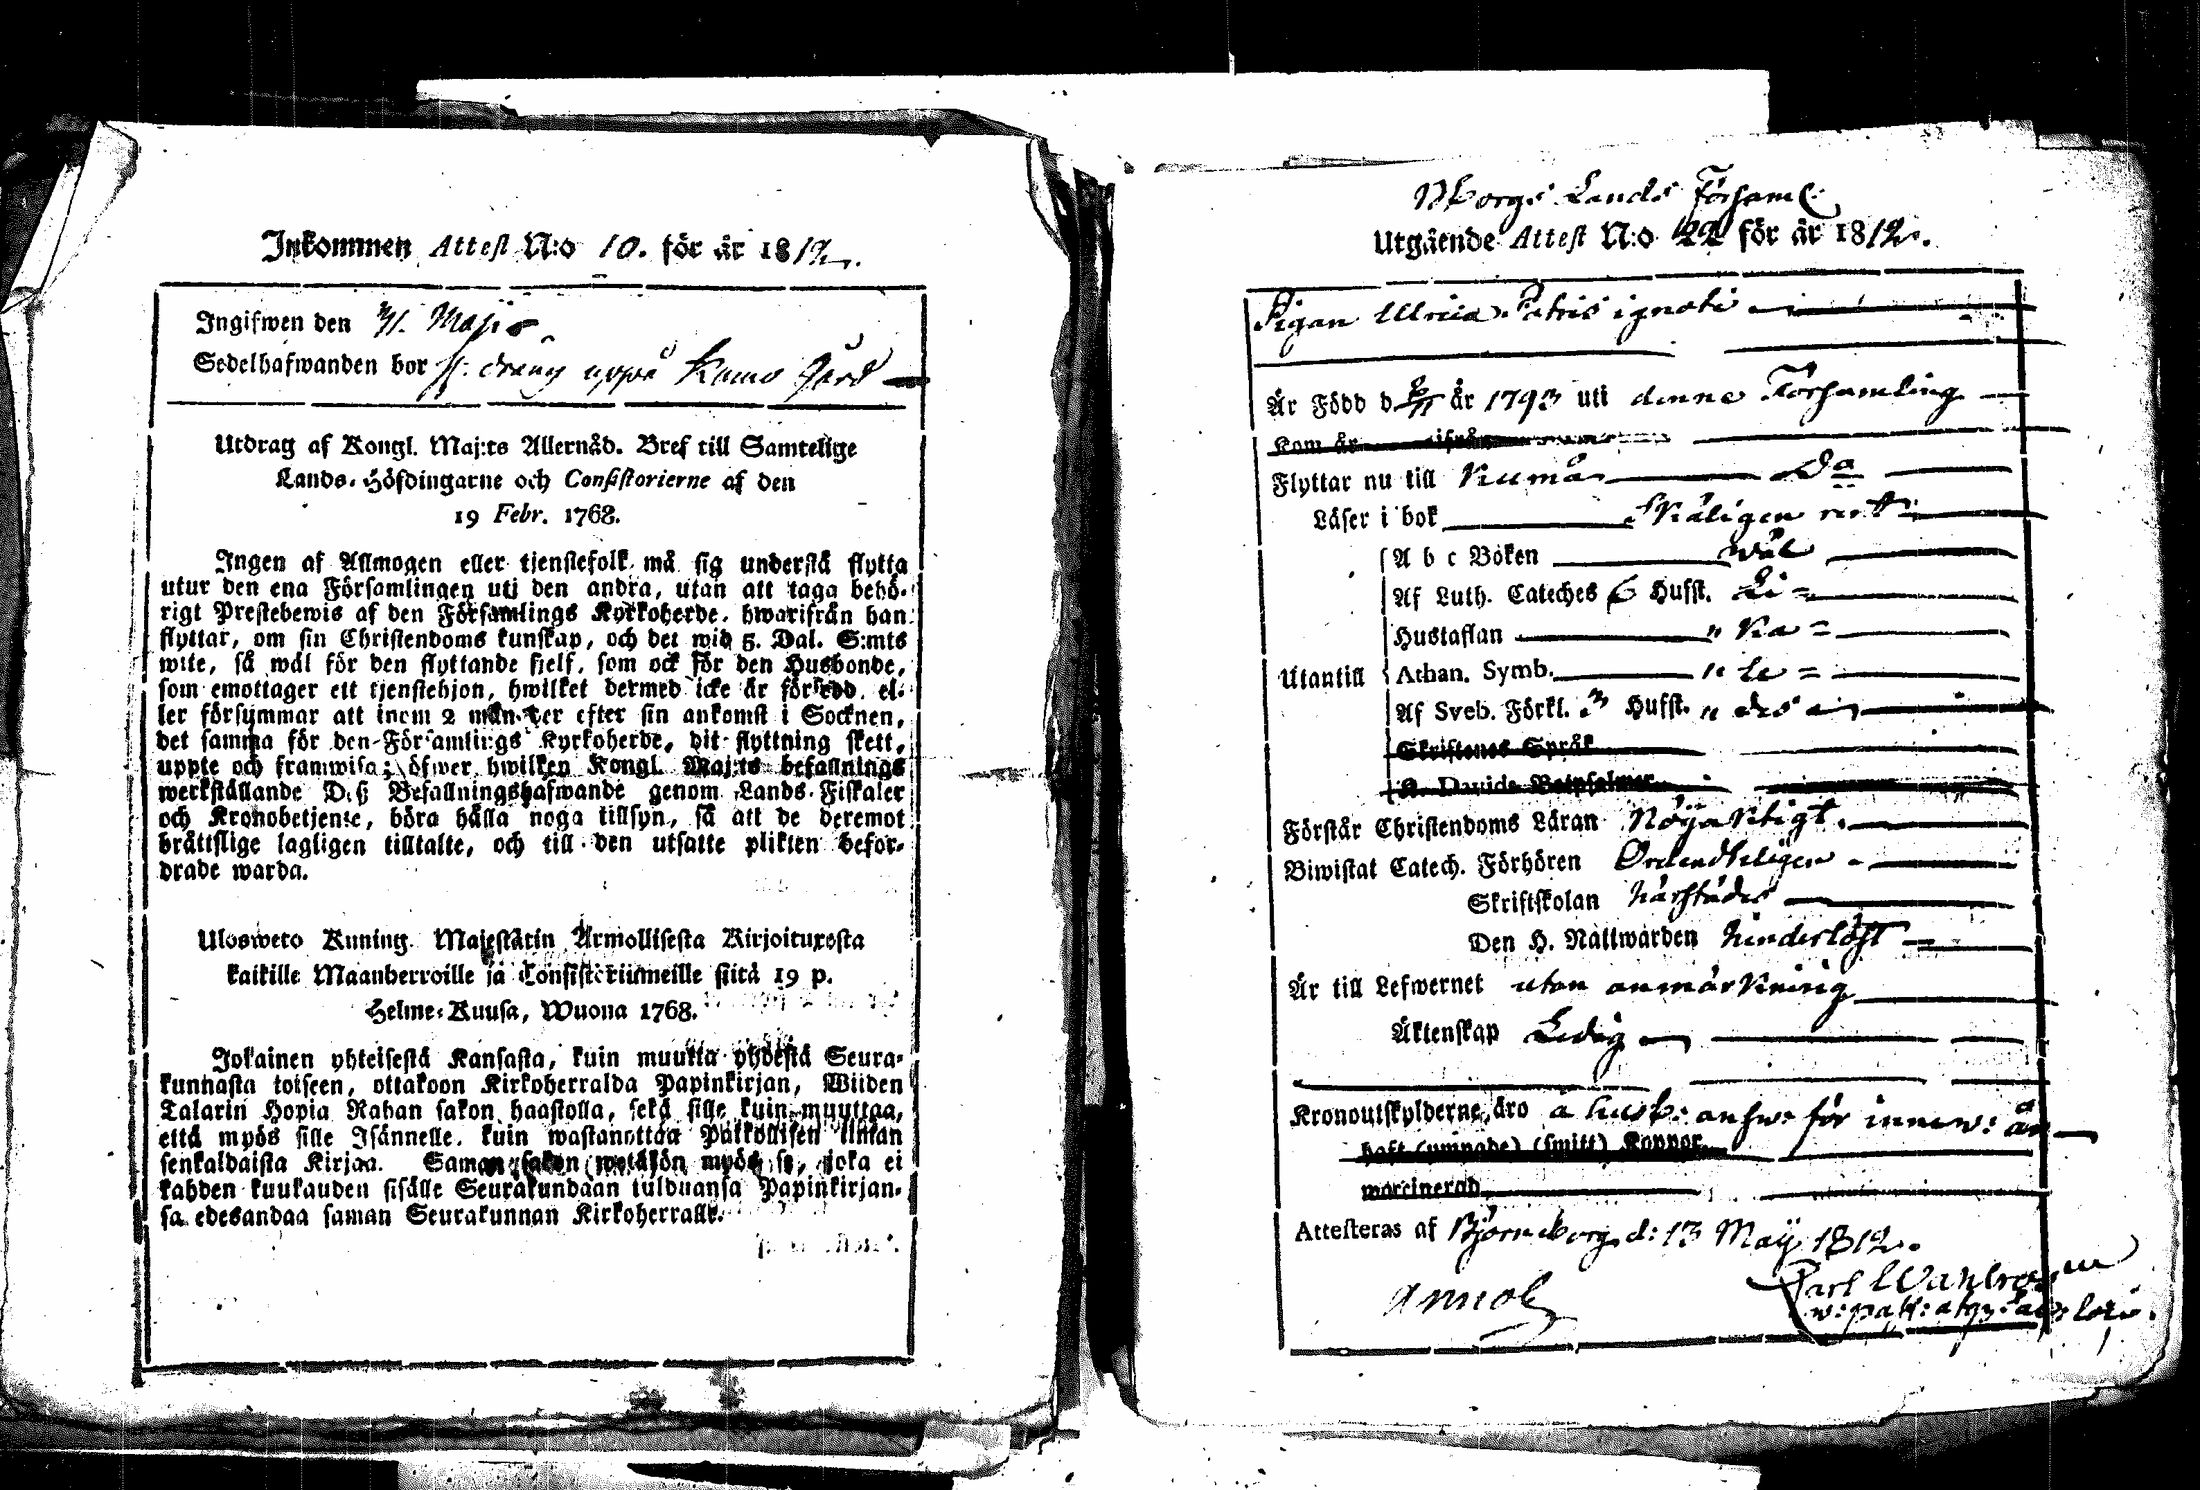 Inkommen Attest N:o 10. för år 1812.
Ingifwen den Maji
Sedelhafwanden bor drång uppå Kumo Gård
Utdrag af Kongl. Maj:ts Allernåd. Bref till Samtelige
Lands-Höfdingarne och Consistorierne af den
19 Febr. 1768.
Ingen af Allmogen eller tjenstefolk må sig understå flytta
utur den ena Församlingen uti den andra, utan att taga behö-
rigt Prestebewis af den Församlings Kyrkoherde, hwarifrån han
flyttar, om sin Christendoms kunskap, och det wid 5. Dal. S:mts
wite, så wäl för den flyttande sjelf, som ock för den Husbonde,
som emottager ett tjenstehjon, hwilket dermed icke är försedd, el-
ler försummar att inom 2 månader efter sin ankomst i Socknen,
det samma för den Församlings Kyrkoherde, dit flyttning skett,
uppte och framwisa; öfwer hwilken Kongl. Maj:ts befallnings
werkställande Deß Befallningshafwande genom Lands-Fiskaler
och Kronobetjente, böra hålla noga tillsyn, så att de deremot
bråttslige lagligen tilltalte, och till den utsatte plikten befor-
drade warda.
Ulosweto Kuning. Majestätin Armollisesta Kirjoituxesta
kaikille Maanherroille ja Consistoriumeille siitä 19 p.
Helme-Kuusa, Wuona 1768.
Jokainen yhteisestä Kansasta, kuin muutta yhdestä Seura-
kunnasta toiseen, ottakoon Kirkoherralda Papinkirjan, Wiiden
Talarin Hopia Rahan sakon haastolla, sekä sille kuin muuttaa,
että myös sille Isännelle, kuin wastanottaa Palkollisen ilman
senkaldaista Kirjaa. Saman sakon wetäkön myös se, joka ei
kahden kuukauden sisälle Seurakundaan tulduansa Papinkirjan-
sa edesandaa saman Seurakunnan Kirkoherralle.
Nborgs Lands Församl:
Utgående Attest N:o 22 för år 1812.
Pigan Ulrica Patris ignoti
Är Född d 6/11 år 1793 uti denne Församling
Kom år ifrån
Flyttar nu till Kumå Do
Läser i bok skäligen rent
A b c Boken wäl
Af Luth. Cateches 6 Hufst. Li
Hustaflan " Ka
Utantill Athan. Symb. " Le
Af Sveb. Förkl. 3 Hufst. " des
Skriftenes Språk
K. Davids Botpsalmer
Förstår Christendoms Läran Nöjaktigt.
Biwistat Catech. Förhören Ordentheligen
Skriftskolan härstädes
Den H. Nattwarden hinderlöst
Är till Lefwernet utan anmärkning
Äktenskap Ledig
Kronoutskylderne äro å husb: answ: för innew: år
haft (ympade) (smitt) Koppor
waccinerad
Attesteras af Björneborg d: 13 Maij 1812.
Carl Wahlroos